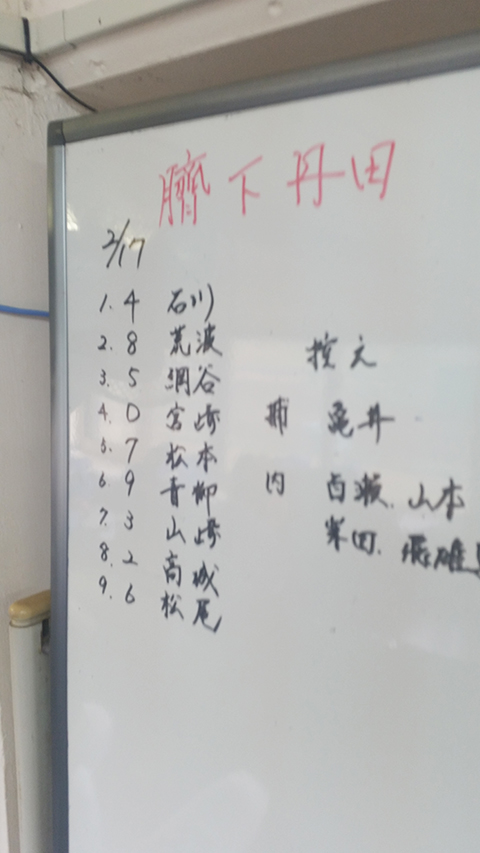 臍下丹田
2/17
1. 4 石川
2. 8 荒波
3. 5 網谷
4. D 宮崎
5. 7 松本
6. 9 青柳
7. 3 山崎
8. 2 高城
9. 6 松尾
控え
捕 亀井
内 百瀬. 山本
岸田.